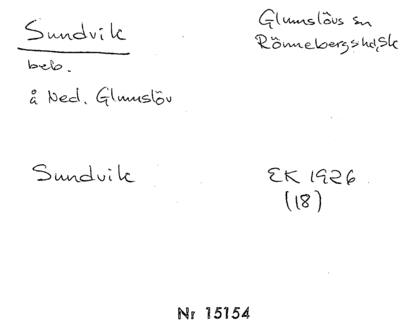 Sundvik
Glumslövs sn
Rönnebergs hd, Sk
beb.
å Ned. Glumslöv
Sundvik
EK 1926
(18)
Nr 15154